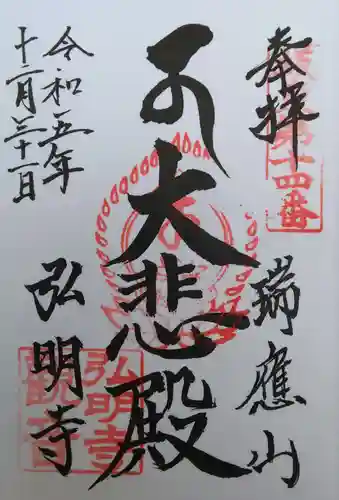 奉拝
第十四番
瑞應山
大悲殿
令和五年
十二月三十一日
弘明寺
弘明寺
觀音